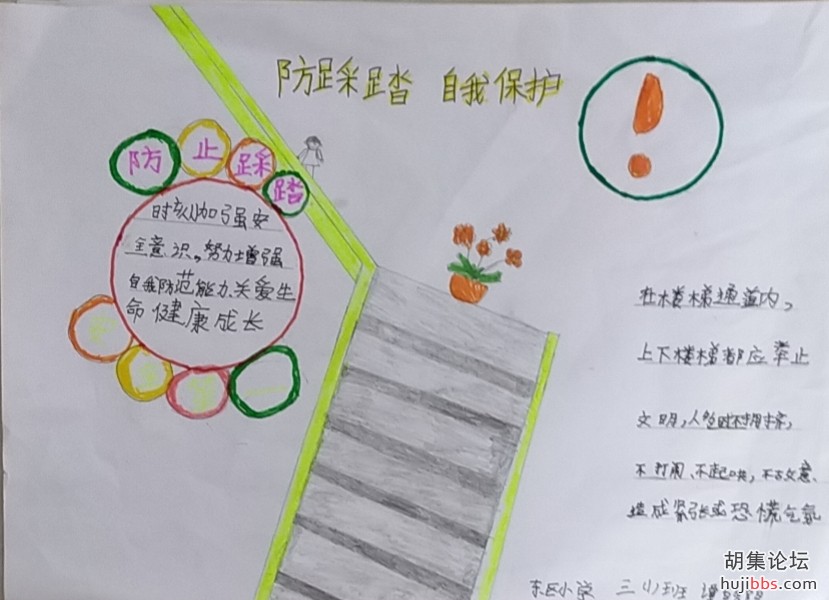 防踩踏 自我保护
!
防止踩踏
时刻加强安
全意识。努力增强
自我防范能力、关爱生
命健康成长
安全第一
在楼梯通道内,
上下楼梯都应举止
文明,人多时不拥挤,
不打闹、不起哄,不故意、
造成紧张或恐慌气氛
东区小学 三(1)班
胡集论坛
hujibbs.com